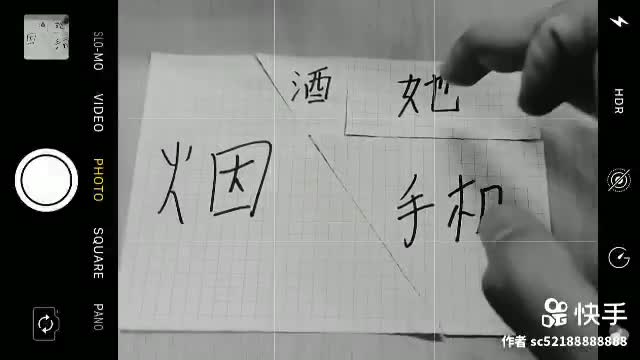 SLO-MO
VIDEO
PHOTO
SQUARE
PANO
酒
她
烟
手机
HDR
快手
作者 sc52188888888